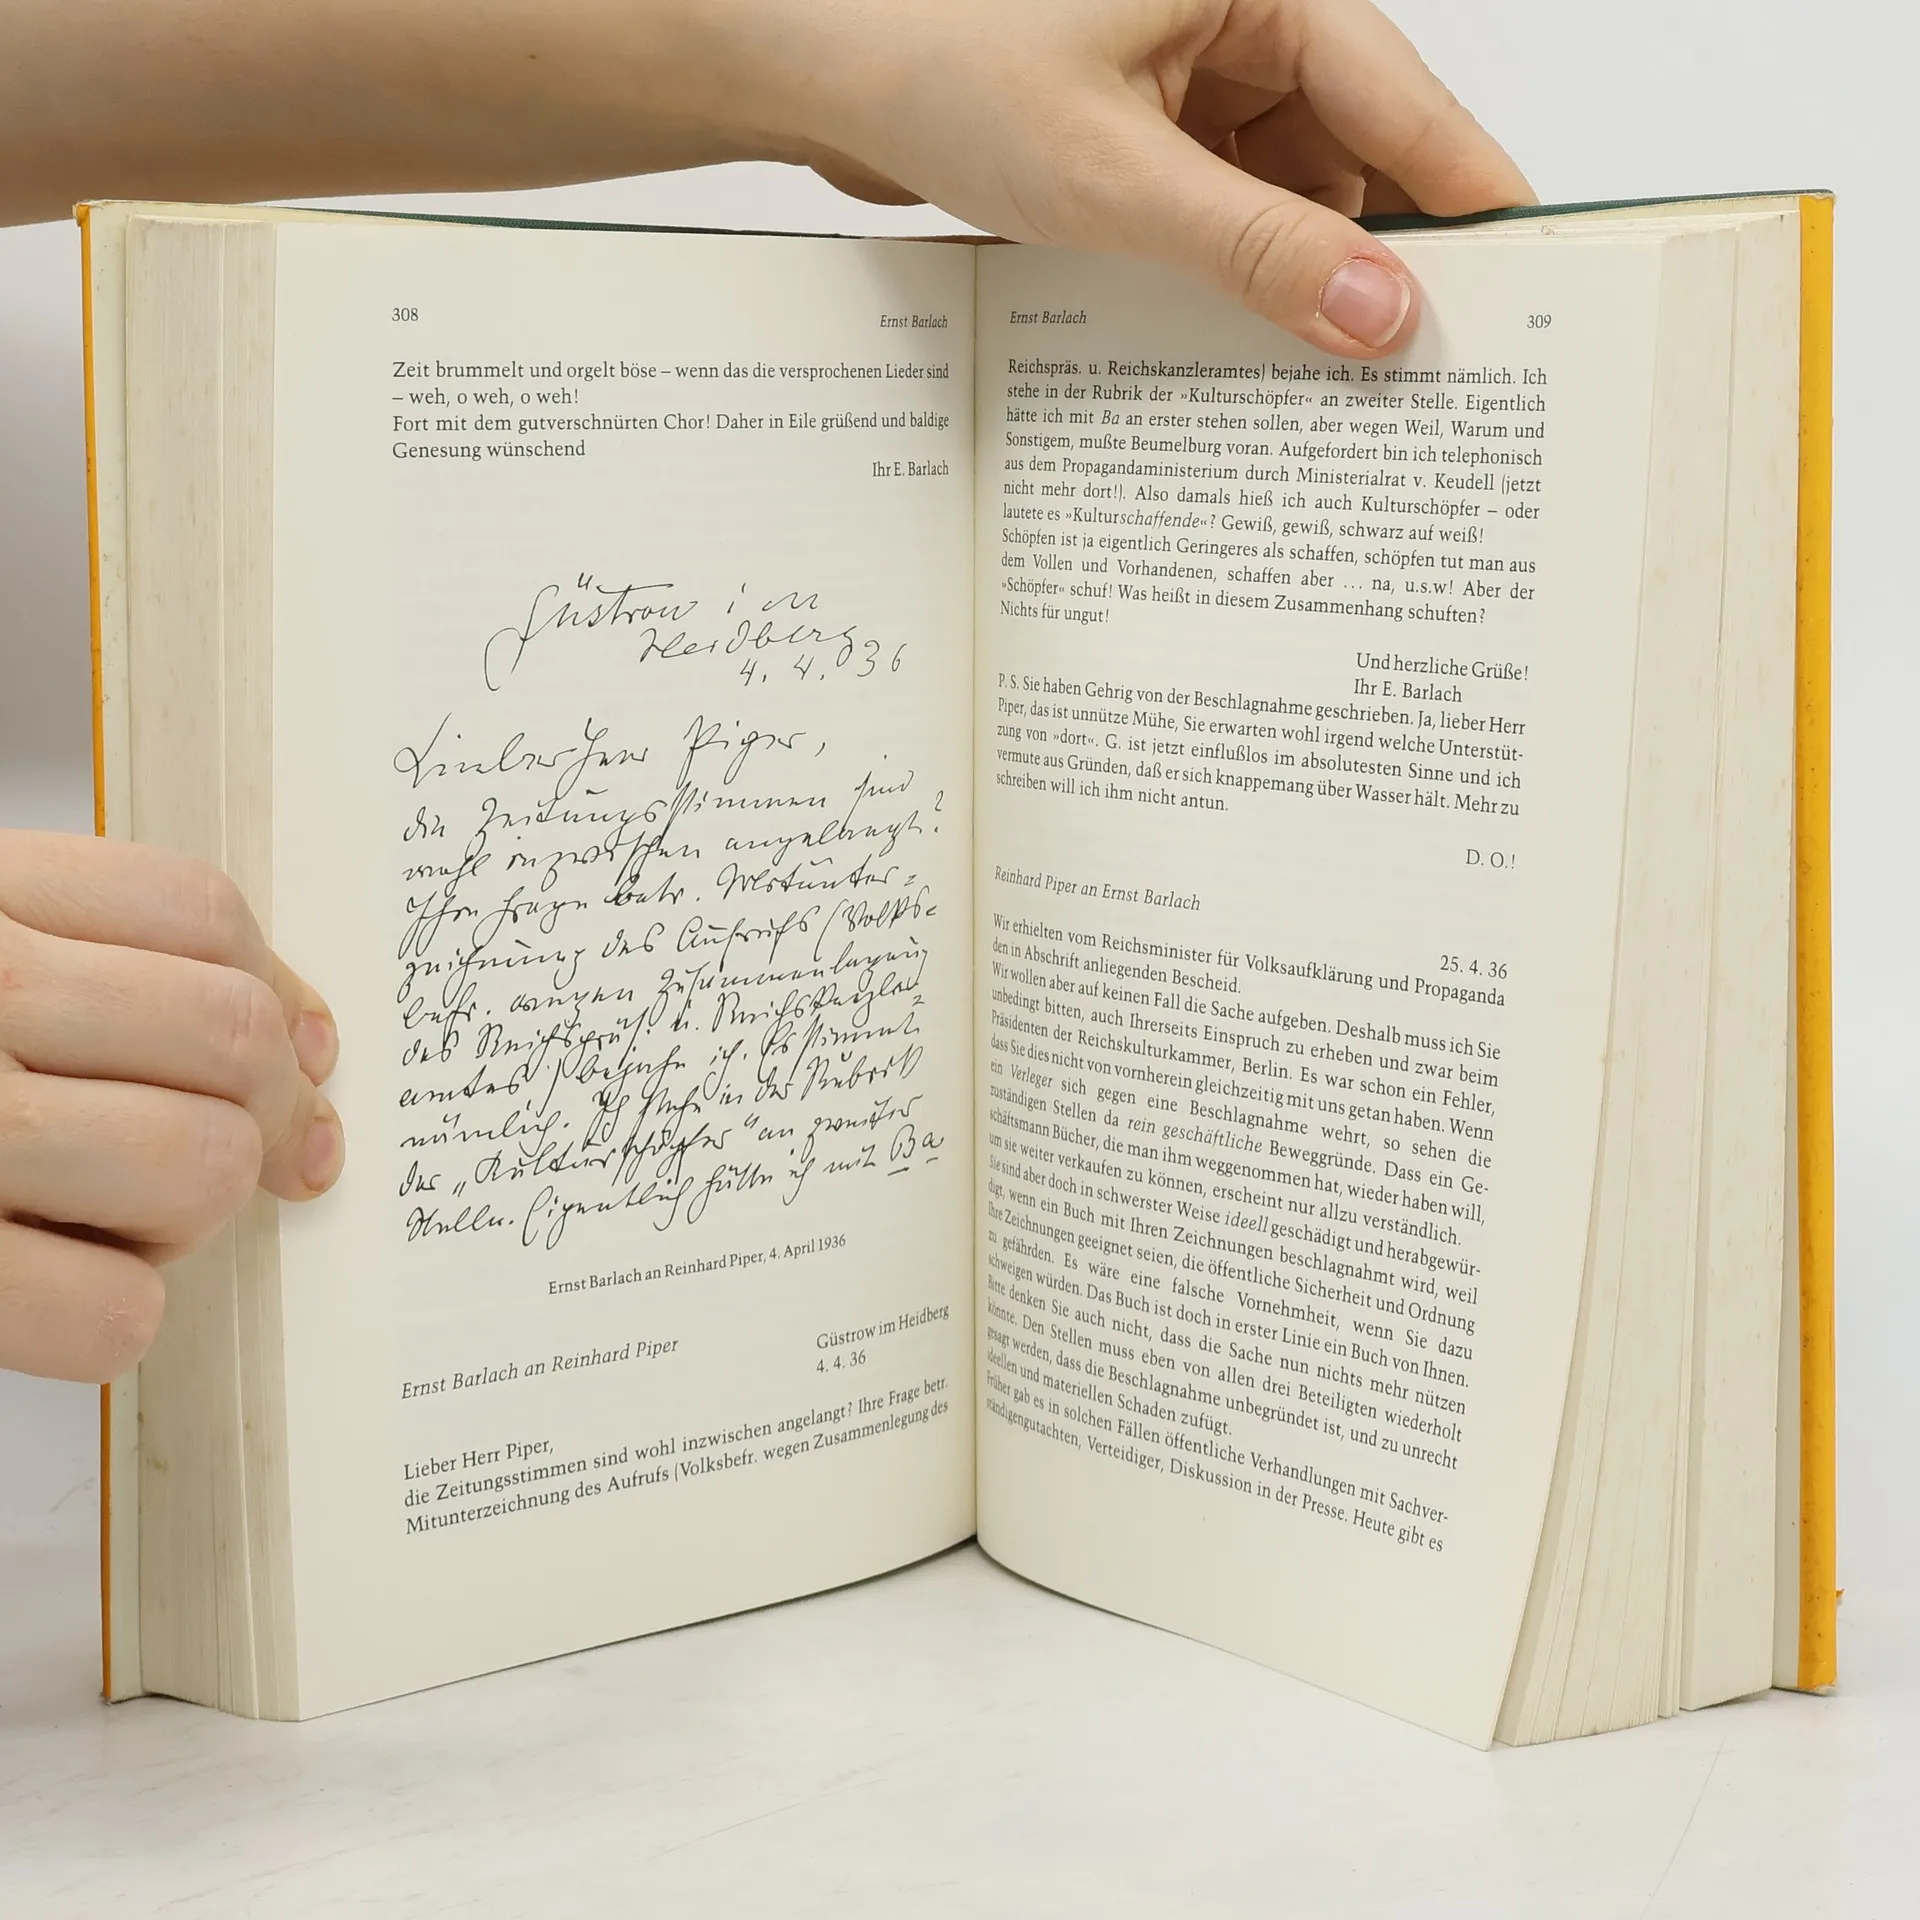 308
Ernst Barlach
Zeit brummelt und orgelt böse – wenn das die versprochenen Lieder sind
– weh, o weh, o weh!
Fort mit dem gutverschnürten Chor! Daher in Eile grüßend und baldige
Genesung wünschend
Ihr E. Barlach
Güstrow im
Heidberg
4. 4. 36
Lieber Herr Piper,
die Zeitungsstimmen sind
wohl inzwischen angelangt?
Ihre Frage betr. Mitunter=
zeichnung des Aufrufs (Volks=
befr. wegen Zusammenlegung
des Reichspräs. u. Reichskanzler=
amtes) bejahe ich. Es stimmt
nämlich. Ich stehe in der Rubrik
der „Kulturschöpfer“ an zweiter
Stelle. Eigentlich hätte ich mit Ba
Ernst Barlach an Reinhard Piper, 4. April 1936
Ernst Barlach an Reinhard Piper
Güstrow im Heidberg
4. 4. 36
Lieber Herr Piper,
die Zeitungsstimmen sind wohl inzwischen angelangt? Ihre Frage betr.
Mitunterzeichnung des Aufrufs (Volksbefr. wegen Zusammenlegung des
Ernst Barlach
309
Reichspräs. u. Reichskanzleramtes) bejahe ich. Es stimmt nämlich. Ich
stehe in der Rubrik der »Kulturschöpfer« an zweiter Stelle. Eigentlich
hätte ich mit Ba an erster stehen sollen, aber wegen Weil, Warum und
Sonstigem, mußte Beumelburg voran. Aufgefordert bin ich telephonisch
aus dem Propagandaministerium durch Ministerialrat v. Keudell (jetzt
nicht mehr dort!). Also damals hieß ich auch Kulturschöpfer – oder
lautete es »Kulturschaffende«? Gewiß, gewiß, schwarz auf weiß!
Schöpfen ist ja eigentlich Geringeres als schaffen, schöpfen tut man aus
dem Vollen und Vorhandenen, schaffen aber ... na, u.s.w! Aber der
»Schöpfer« schuf! Was heißt in diesem Zusammenhang schuften?
Nichts für ungut!
Und herzliche Grüße!
Ihr E. Barlach
P. S. Sie haben Gehrig von der Beschlagnahme geschrieben. Ja, lieber Herr
Piper, das ist unnütze Mühe, Sie erwarten wohl irgend welche Unterstüt-
zung von »dort«. G. ist jetzt einflußlos im absolutesten Sinne und ich
vermute aus Gründen, daß er sich knappemang über Wasser hält. Mehr zu
schreiben will ich ihm nicht antun.
D. O.!
Reinhard Piper an Ernst Barlach
25. 4. 36
Wir erhielten vom Reichsminister für Volksaufklärung und Propaganda
den in Abschrift anliegenden Bescheid.
Wir wollen aber auf keinen Fall die Sache aufgeben. Deshalb muss ich Sie
unbedingt bitten, auch Ihrerseits Einspruch zu erheben und zwar beim
Präsidenten der Reichskulturkammer, Berlin. Es war schon ein Fehler,
dass Sie dies nicht von vornherein gleichzeitig mit uns getan haben. Wenn
ein Verleger sich gegen eine Beschlagnahme wehrt, so sehen die
zuständigen Stellen da rein geschäftliche Beweggründe. Dass ein Ge-
schäftsmann Bücher, die man ihm weggenommen hat, wieder haben will,
um sie weiter verkaufen zu können, erscheint nur allzu verständlich.
Sie sind aber doch in schwerster Weise ideell geschädigt und herabgewür-
digt, wenn ein Buch mit Ihren Zeichnungen beschlagnahmt wird, weil
Ihre Zeichnungen geeignet seien, die öffentliche Sicherheit und Ordnung
zu gefährden. Es wäre eine falsche Vornehmheit, wenn Sie dazu
schweigen würden. Das Buch ist doch in erster Linie ein Buch von Ihnen.
Bitte denken Sie auch nicht, dass die Sache nun nichts mehr nützen
könnte. Den Stellen muss eben von allen drei Beteiligten wiederholt
gesagt werden, dass die Beschlagnahme unbegründet ist, und zu unrecht
ideellen und materiellen Schaden zufügt.
Früher gab es in solchen Fällen öffentliche Verhandlungen mit Sachver-
ständigengutachten, Verteidiger, Diskussion in der Presse. Heute gibt es